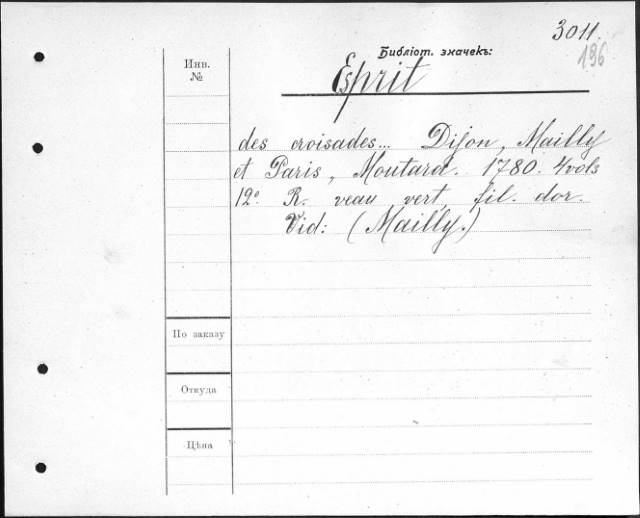 3011.
196
Библіот. значекъ:
Инв.
№
Esprit
des croisades... Dijon, Mailly
et Paris, Moutard. 1780. 4 vols
12º R. veau vert, fil. dor.
Vid: (Mailly.)
По заказу
Откуда
Цѣна